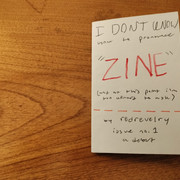 I DON'T KNOW
how to pronounce
"ZINE"
(and at this point i'm
too afraid to ask)
issue no. 1